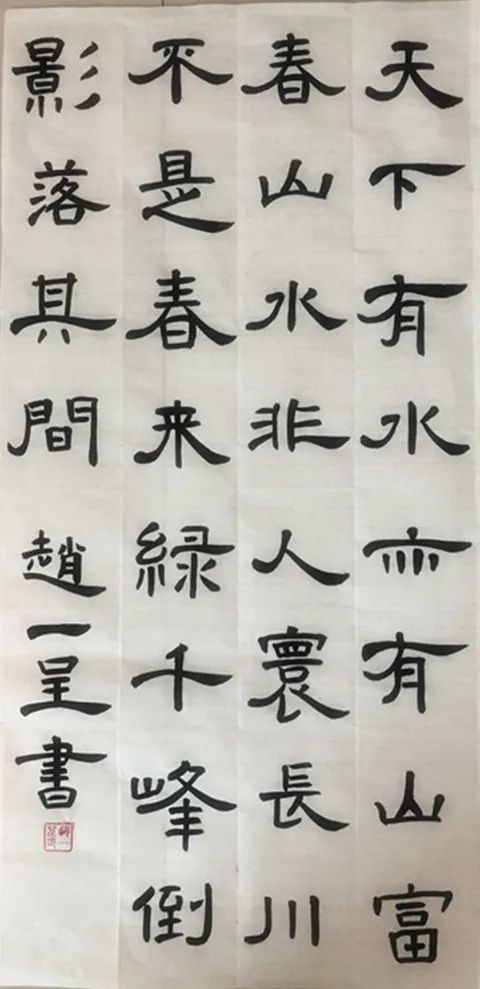 天下有水亦有山富
春山水非人寰長川
不是春来緑千峰倒
影落其間 趙一呈書